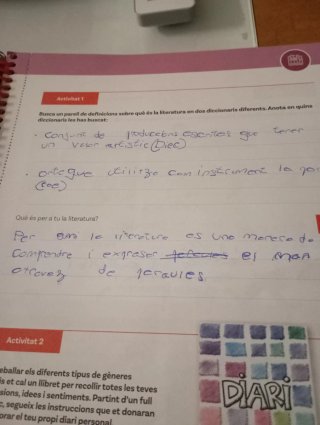 Activitat 1
Busca un parell de definicions sobre què és la literatura en dos diccionaris diferents. Anota en quins
diccionaris les has buscat:
· Conjunt de produccions escrites que tenen
un valor artístic (Diec)
· art que utilitza com instrument la
Què és per a tu la literatura?
Per a la literatura es una manera de
Comprendre i expresar el
a traves de paraules.
Activitat 2
eballar els diferents tipus de gèneres
is et cal un llibret per recollir totes les teves
sions, idees i sentiments. Partint d'un full
c, segueix les instruccions que et donaran
orar el teu propi diari personal
DIARI